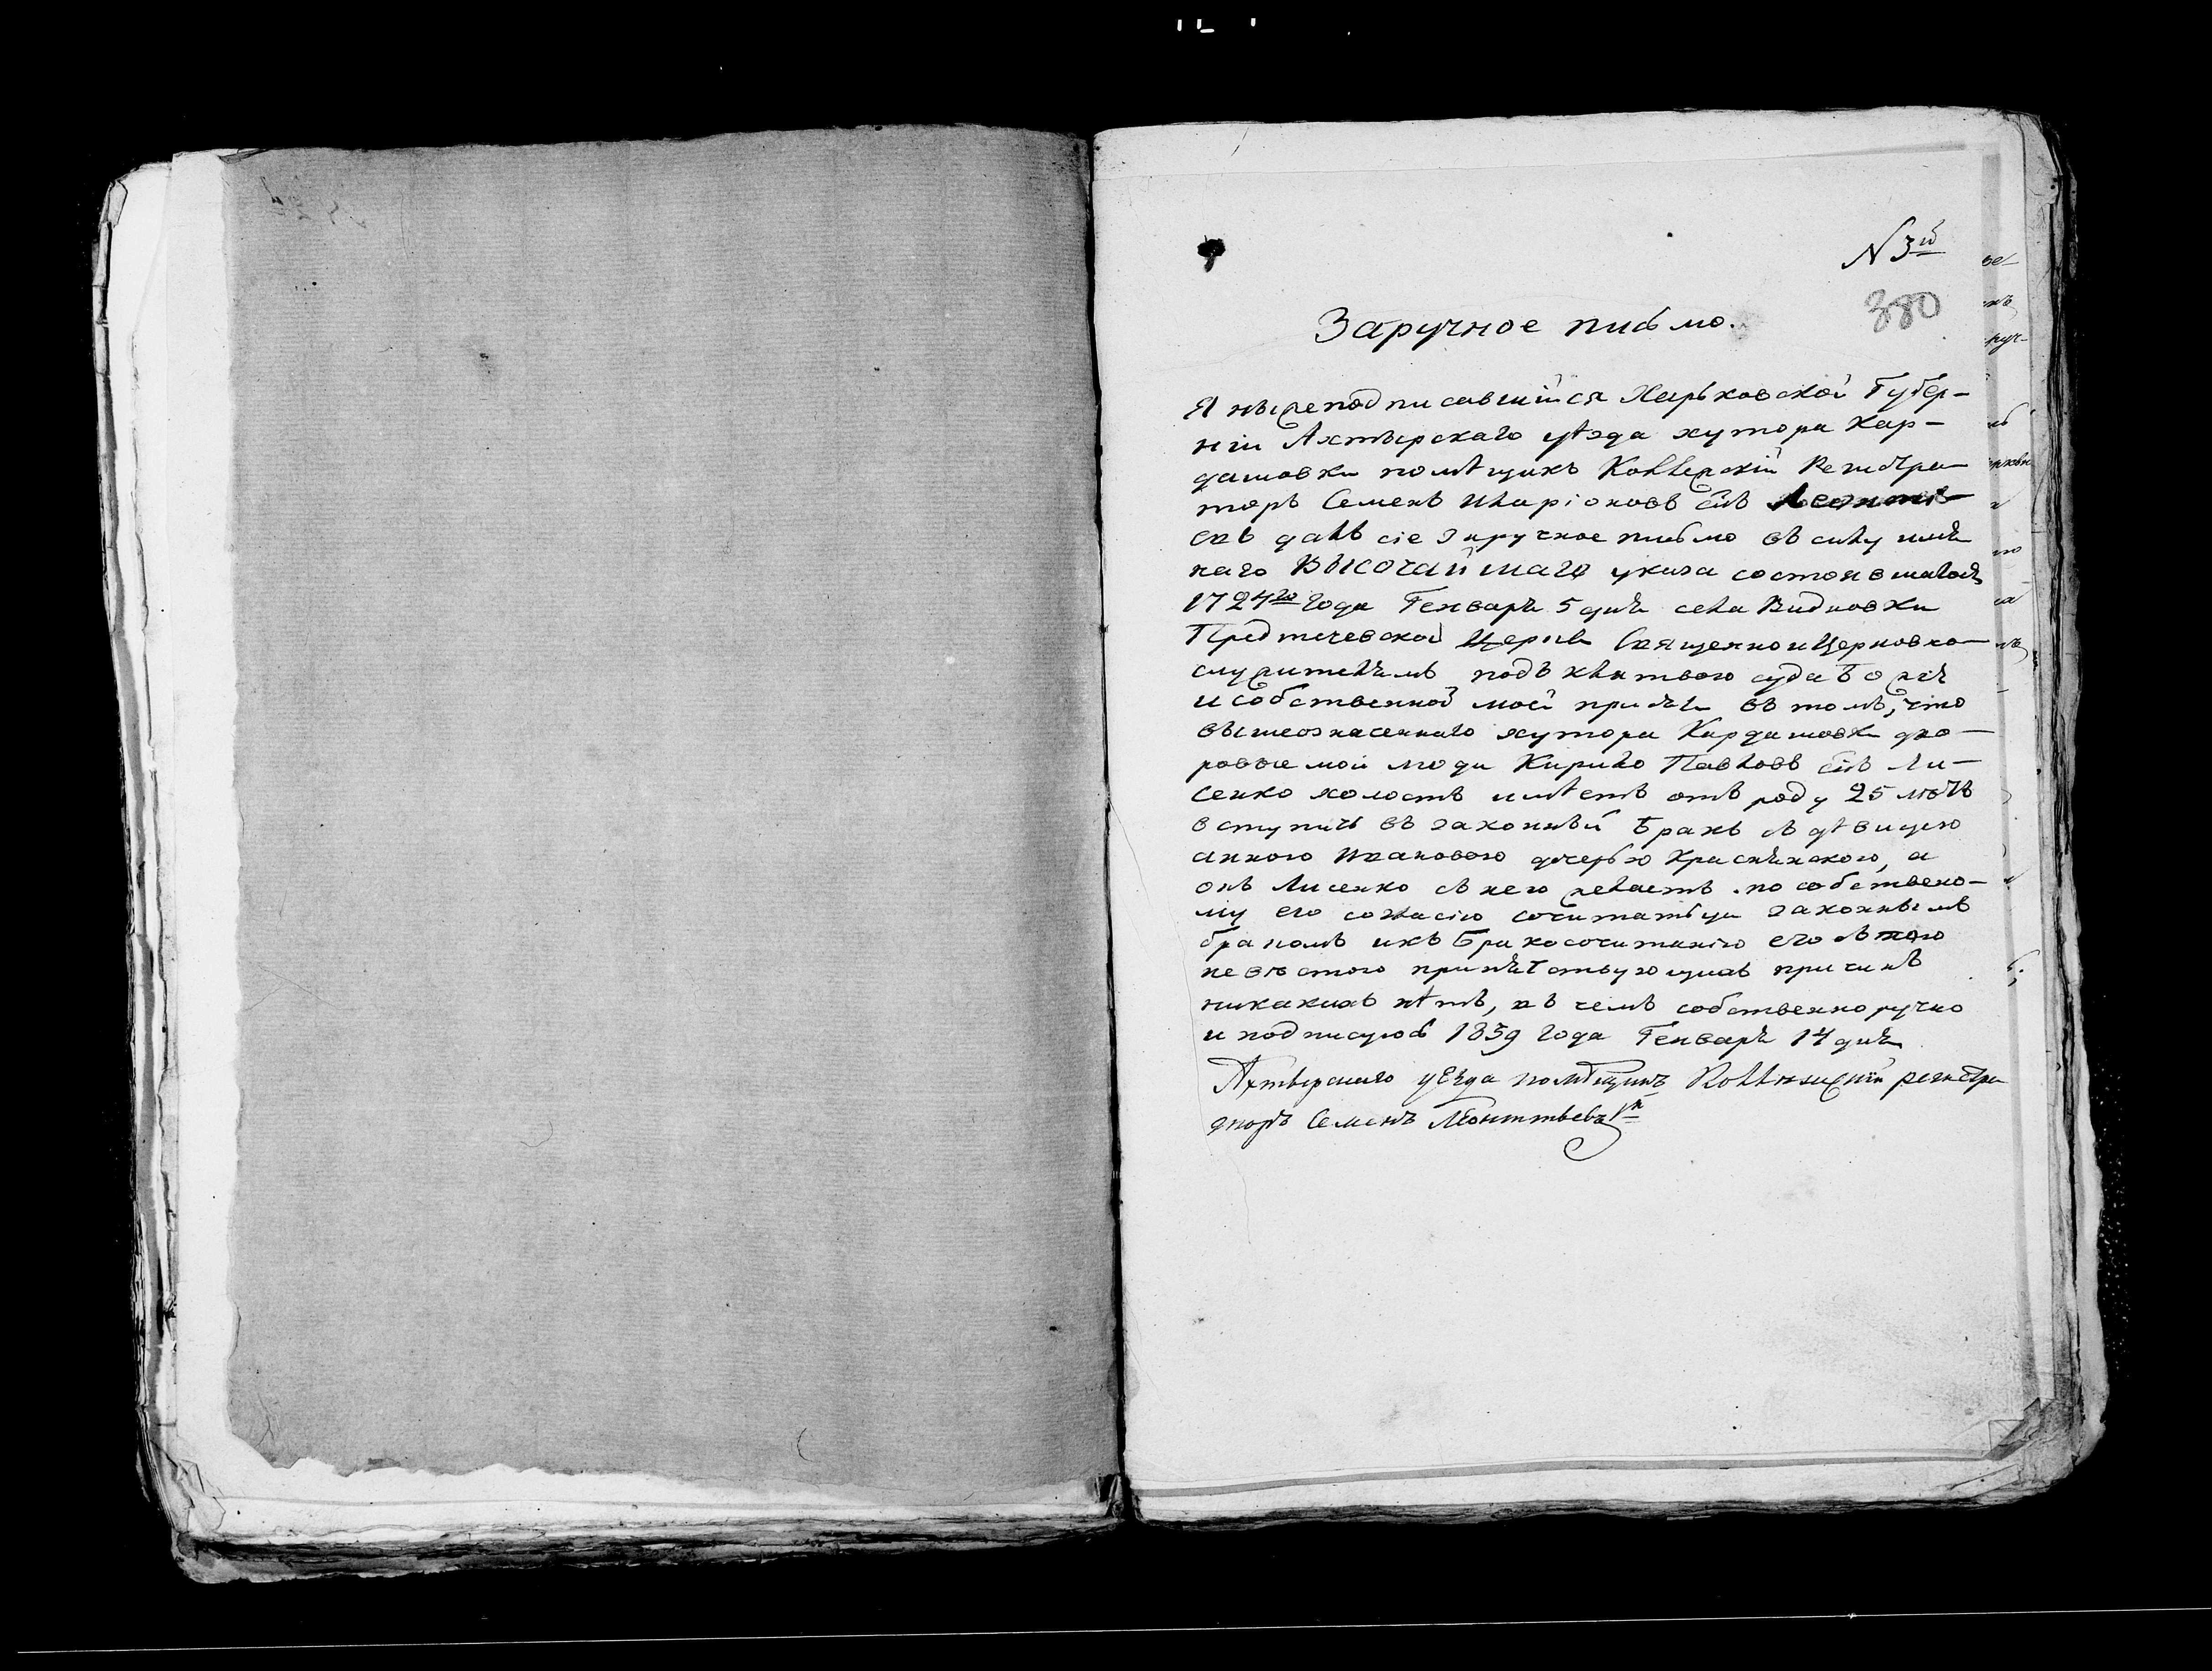 N 3й
380
Заручное письмо.
Я нижеподписавшійся Харьковской Губер-
ніи Ахтырскаго уѣзда хутора Кар-
дашовки помѣщикъ Коллежскій Регистра-
торъ Семенъ Иларіоновъ сн҃ъ Леонті-
евъ далъ сіе заручное письмо въ силу имян
наго ВЫСОЧАЙШАГО указа состоявшагося
1724го года Генваря 5 дня села
Предтечевской Церкви Священно и Церковно-
служителямъ подъ клятвою суда Божія
и собственной моей присяги въ томъ, что
вышеозначеннаго хутора Кардашовки дво-
ровые мои люди Кирило Павловъ сн҃ъ Ли-
сенко холостъ имѣетъ отъ роду 25 лѣтъ
вступить въ законный бракъ съ дѣвицею
анною Ивановою дочерью Краснянскою, а
онъ Лисенко съ нею желаетъ по собствено-
му его согласію сочитаться законнымъ
бракомъ и къ бракосочитанію его съ тою
невѣстою препятствующихъ причинъ
никакихъ нѣтъ, въ чемъ собственноручно
и подписуюсь 1839 года Генваря 14 дня
Ахтырскаго уѣзда помѣщикъ Коллежскій регистра
торъ Семенъ Леонтьевъ